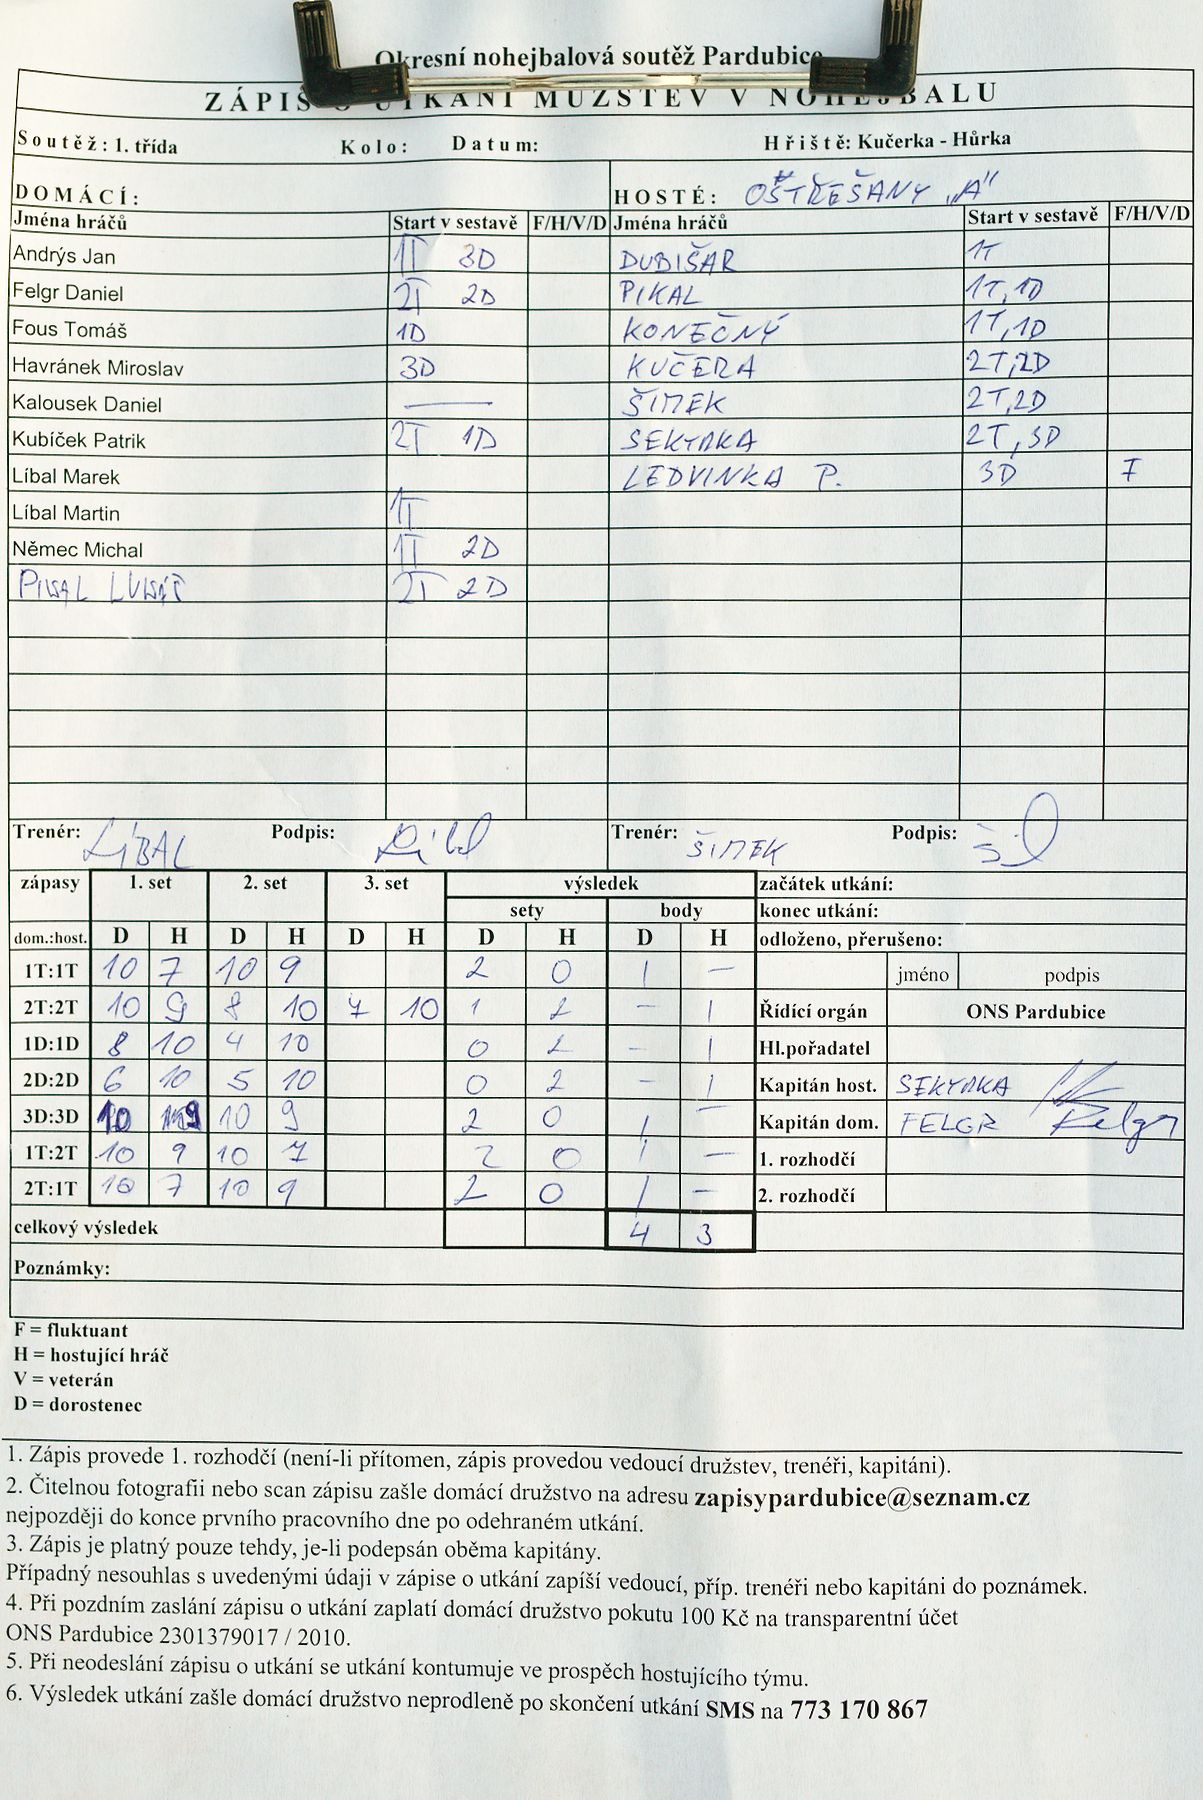 Okresní nohejbalová soutěž Pardubice
ZÁPIS O UTKÁNÍ MUŽSTEV V NOHEJBALU
Soutěž: 1. třída Kolo: Datum: Hřiště: Kučerka - Hůrka
DOMÁCÍ: HOSTÉ: OSTŘEŠANY „A"
Jména hráčů Start v sestavě F/H/V/D Jména hráčů Start v sestavě F/H/V/D
Andrýs Jan 1T 3D DUBIŠAR 1T
Felgr Daniel 2T 2D PIKAL 1T, 1D
Fous Tomáš 1D KONEČNÝ 1T, 1D
Havránek Miroslav 3D KUČERA 2T, 2D
Kalousek Daniel — ŠIMEK 2T, 2D
Kubíček Patrik 2T 1D SEKYRKA 2T, 3D
Líbal Marek LEDVINKA P. 3D F
Líbal Martin 1T
Němec Michal 1T 2D
LUKÁŠ 2T 2D
Trenér: LÍBAL Podpis: Líbal Trenér: ŠIMEK Podpis:
zápasy 1. set 2. set 3. set výsledek začátek utkání:
sety body konec utkání:
dom.:host. D H D H D H D H D H odloženo, přerušeno:
1T:1T 10 7 10 9 2 0 1 – jméno podpis
2T:2T 10 9 8 10 7 10 1 2 – 1 Řídící orgán ONS Pardubice
1D:1D 8 10 4 10 0 2 – 1 Hl.pořadatel
2D:2D 6 10 5 10 0 2 – 1 Kapitán host. SEKYRKA
3D:3D 10 9 10 9 2 0 1 – Kapitán dom. FELGR Felgr
1T:2T 10 9 10 7 2 0 1 – 1. rozhodčí
2T:1T 10 7 10 9 2 0 1 – 2. rozhodčí
celkový výsledek 4 3
Poznámky:
F = fluktuant
H = hostující hráč
V = veterán
D = dorostenec
1. Zápis provede 1. rozhodčí (není-li přítomen, zápis provedou vedoucí družstev, trenéři, kapitáni).
2. Čitelnou fotografii nebo scan zápisu zašle domácí družstvo na adresu zapisypardubice@seznam.cz
nejpozději do konce prvního pracovního dne po odehraném utkání.
3. Zápis je platný pouze tehdy, je-li podepsán oběma kapitány.
Případný nesouhlas s uvedenými údaji v zápise o utkání zapíší vedoucí, příp. trenéři nebo kapitáni do poznámek.
4. Při pozdním zaslání zápisu o utkání zaplatí domácí družstvo pokutu 100 Kč na transparentní účet
ONS Pardubice 2301379017 / 2010.
5. Při neodeslání zápisu o utkání se utkání kontumuje ve prospěch hostujícího týmu.
6. Výsledek utkání zašle domácí družstvo neprodleně po skončení utkání SMS na 773 170 867